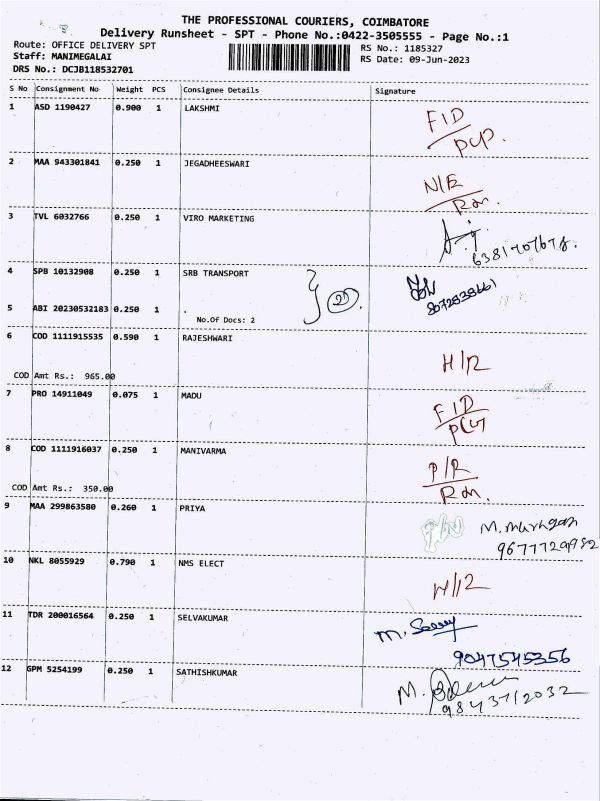 THE PROFESSIONAL COURIERS, COIMBATORE
Delivery Runsheet - SPT - Phone No.:0422-3505555 - Page No.:1
Route: OFFICE DELIVERY SPT
Staff: MANIMEGALAI
DRS No.: DCJB118532701
RS No.: 1185327
RS Date: 09-Jun-2023
S No Consignment No Weight PCS Consignee Details Signature
1 ASD 1190427 0.900 1 LAKSHMI
F/D
2 MAA 943301841 0.250 1 JEGADHEESWARI
N/E
Rm.
3 TVL 6032766 0.250 1 VIRO MARKETING
4 SPB 10132908 0.250 1 SRB TRANSPORT
5 ABI 20230532183 0.250 1 .
No.Of Docs: 2
2
6 COD 1111915535 0.590 1 RAJESHWARI
COD Amt Rs.: 965.00
7 PRO 14911049 0.075 1 MADU
F/D
8 COD 1111916037 0.250 1 MANIVARMA
P/R
Rm.
COD Amt Rs.: 350.00
9 MAA 299863580 0.260 1 PRIYA
M. Murugan
9677729982
10 NKL 8055929 0.790 1 NMS ELECT
11 TDR 200016564 0.250 1 SELVAKUMAR
9047545356
12 GPM 5254199 0.250 1 SATHISHKUMAR
9843712032